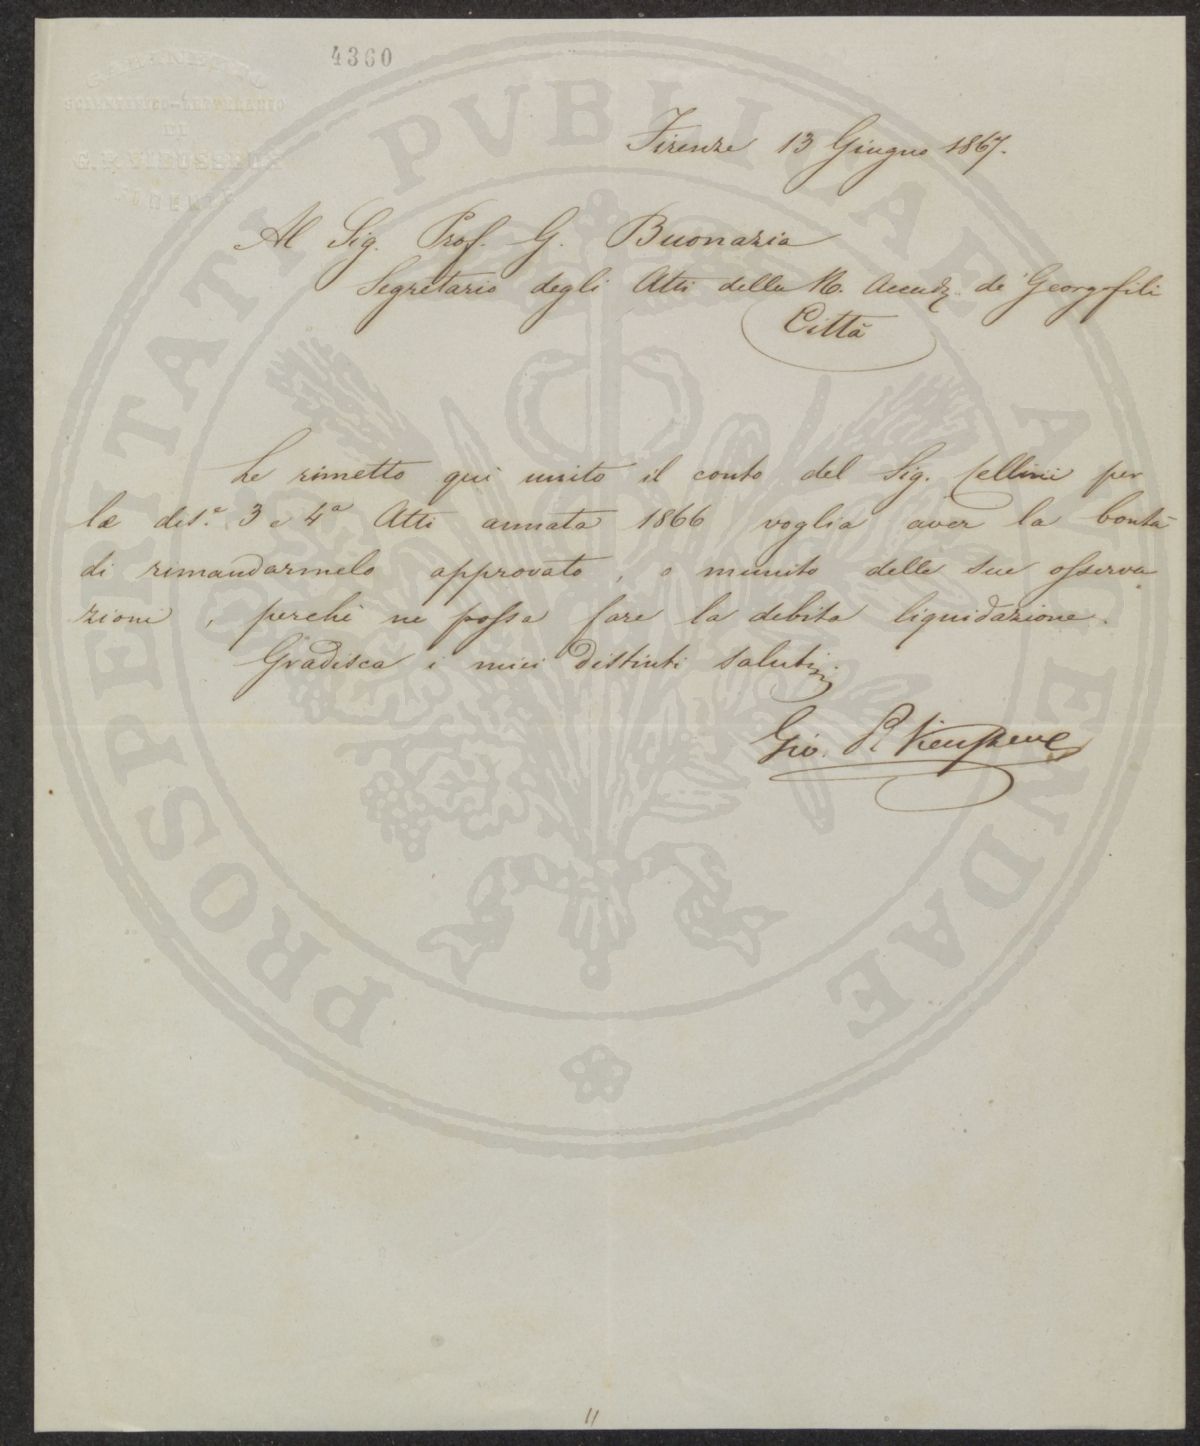 4360
GABINETTO
SCIENTIFICO-LETTERARIO
DI
G. P. VIEUSSEUX
FIRENZE
PROSPERITATI PVBLICAE AVGENDAE
Firenze 13 Giugno 1867.
Al Sig. Prof. G. Buonazia
Segretario degli Atti della R. Accadª. de' Georgofili
Città
Le rimetto quì unito il conto del Sig. Cellini per
la dis.ª 3 e 4ª Atti annata 1866 voglia aver la bontà
di rimandarmelo approvato, o munito delle sue osserva
zioni, perchè ne possa fare la debita liquidazione.
Gradisca i miei distinti saluti
Gio. P. Vieusseux
11